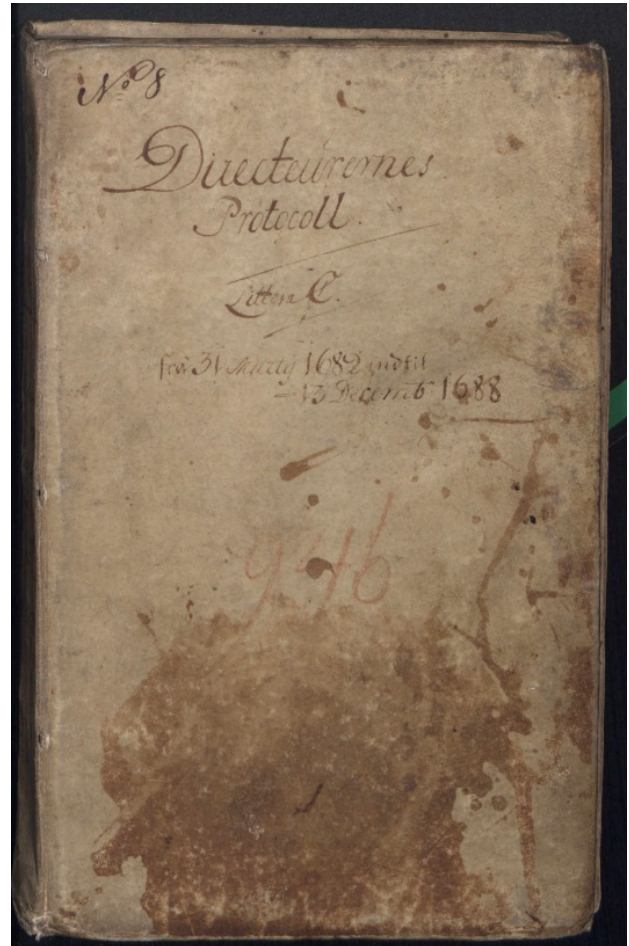 No 8
Directeurernes
Protocoll.
Littera C.
fra 31 Marty 1682 indtil
13 Decemb 1688
946